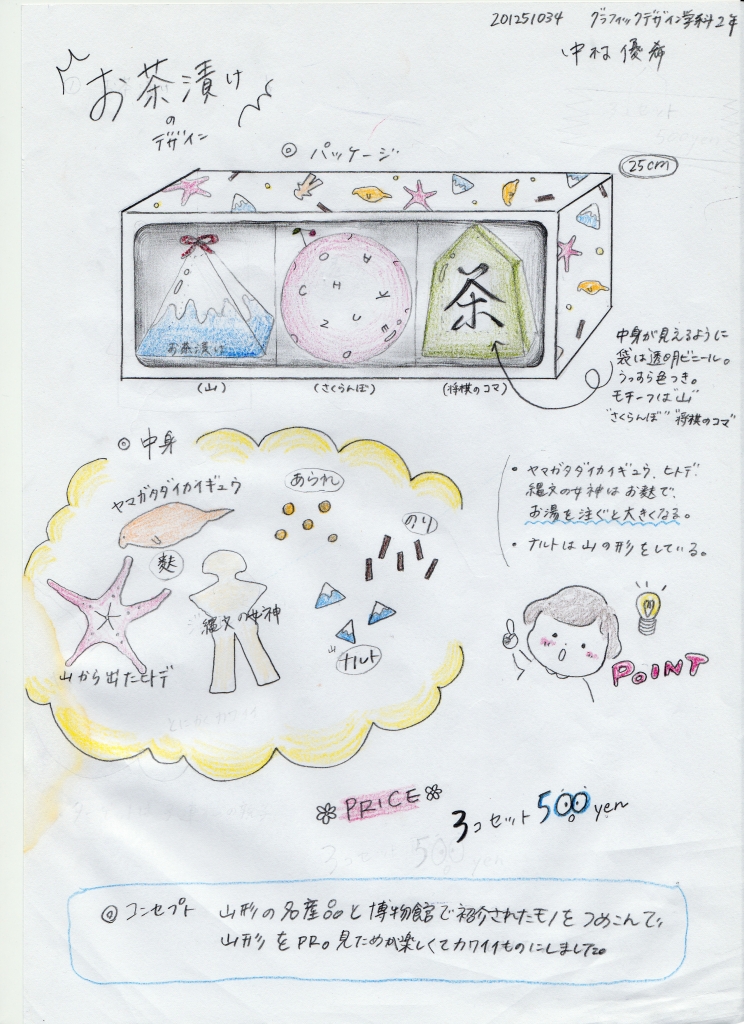 201251034 グラフィックデザイン学科2年
中村優希
お茶漬け
の
デザイン
◎ パッケージ
25cm
お茶漬け
OCHAZUKE
茶
(山)
(さくらんぼ)
(将棋のコマ)
中身が見えるように
袋は透明ビニール。
うっすら色つき。
モチーフは"山"
"さくらんぼ""将棋のコマ"
◎ 中身
ヤマガタダイカイギュウ
あられ
のり
麩
縄文の女神
山から出たヒトデ
ナルト
・ヤマガタダイカイギュウ、ヒトデ
縄文の女神はお麩で、
お湯を注ぐと大きくなる。
・ナルトは山の形をしている。
POINT
PRICE
3コセット 500yen
◎ コンセプト 山形の名産品と博物館で紹介されたモノをつめこんで、
山形をPR。見ためが楽しくてカワイイものにしました。